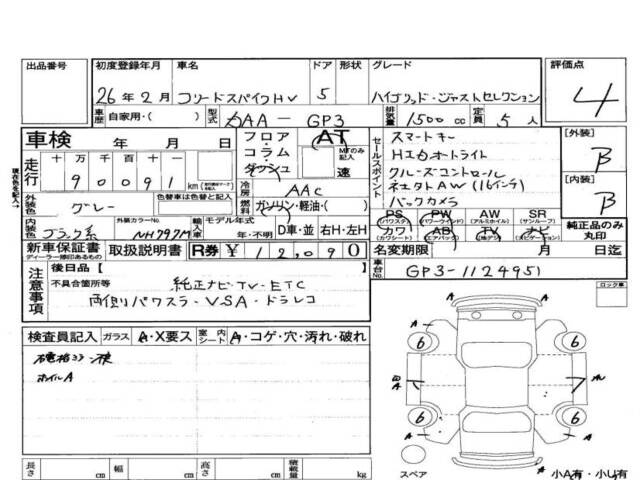 出品番号 初度登録年月 車名 ドア 形状 グレード 評価点
26年2月 フリードスパイクHV 5 ハイブリッド・ジャストセレクション 4
車歴 自家用・( ) 型式 DAA-GP3 排気量 1500cc 定員 5人
車検 年 月 日
フロア・コラム・ダッシュ AT MTのみ記入 速
セールスポイント
スマートキー
HIDオートライト
クルーズコントロール
純正AW(16インチ)
バックカメラ
[外装] B
[内装] B
現在色名も記入→
走行 十万 万 千 百 十 一
90091 km
冷房 AAC
外装色 グレー 色替車は色替と記入
燃料 ガソリン・軽油・( )
PS (パワステ) PW (パワーウインド) AW (アルミホイル) SR (サンルーフ)
カワ (カワシート) AB (エアバック) TV (地デジ) ナビ (ナビゲーション)
純正品のみ丸印
内装色 ブラック系 外装カラーNo. NH797M
輸入車 モデル年式 年・不明 D車・並 右H・左H
新車保証書 ディーラー捺印あるもの 取扱説明書 R券 ¥12,090
名変期限 月 日迄
車台No. GP3-1124951
注意事項
後日品 [ ]
不具合箇所等 純正ナビ・TV・ETC
両側パワスラ・VSA・ドラレコ
ロック車
検査員記入 ガラス A・X要ス 室内シート A・コゲ・穴・汚れ・破れ
ホイルA
A A
6 6
A
6 6
A A
スペア 小A有・小U有
長さ cm 幅 cm 高さ cm 積載量 kg